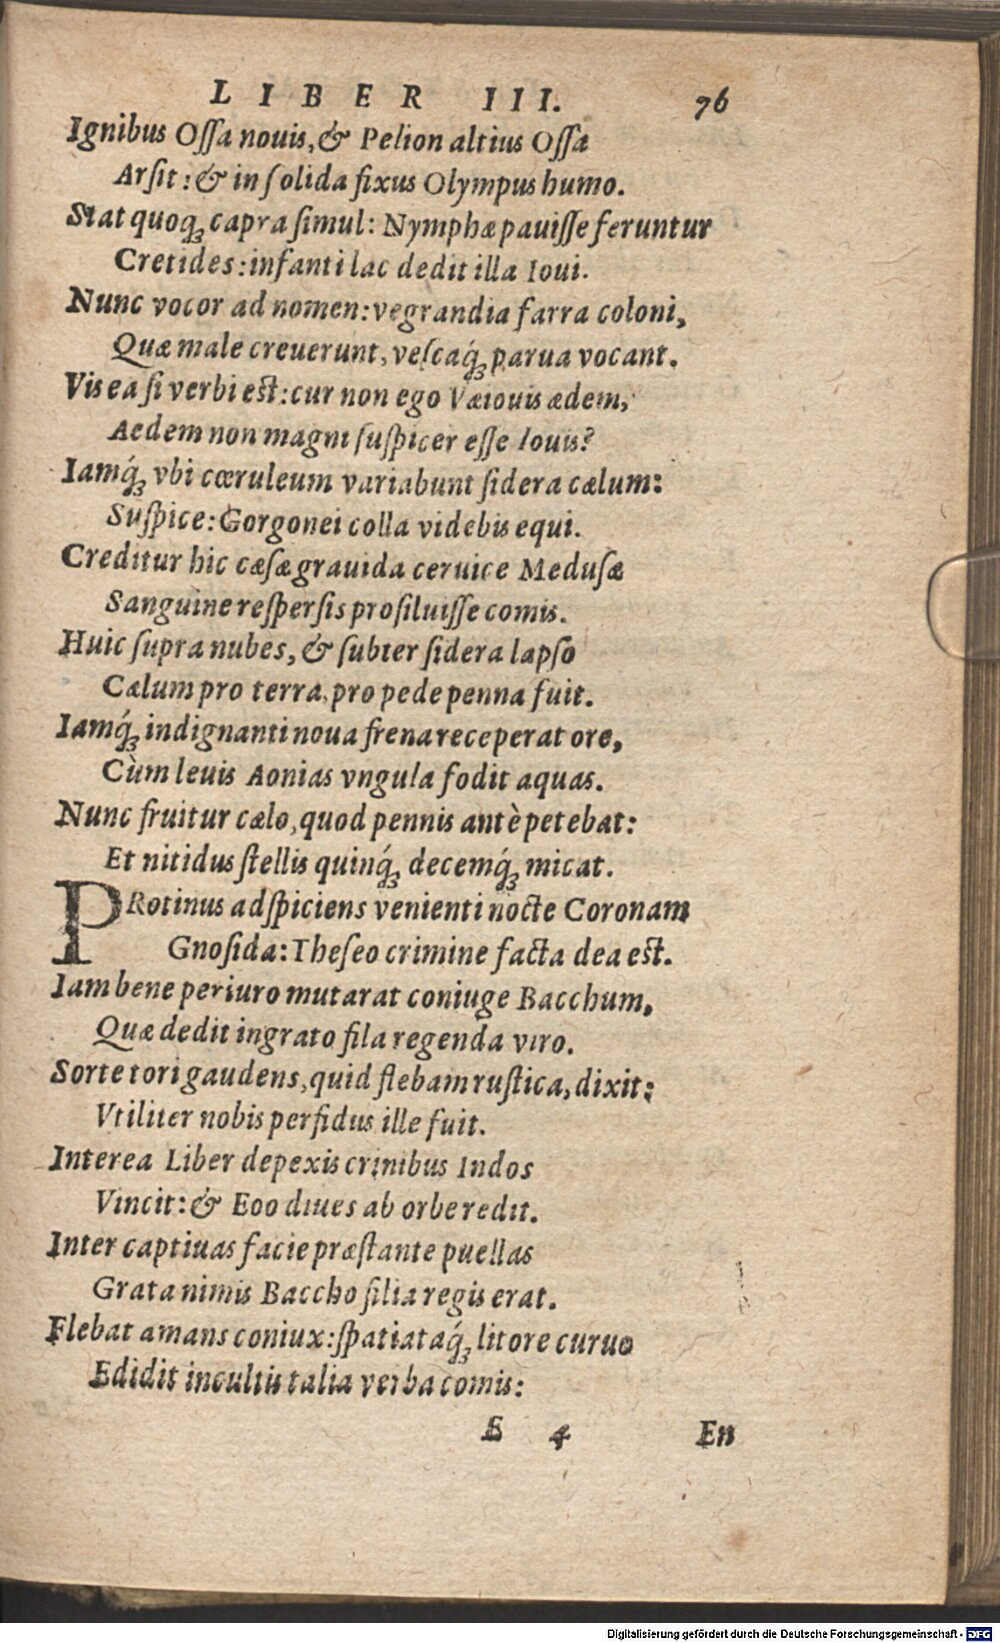 LIBER III. 76
Ignibus Oſſa nouis, & Pelion altius Oſſa
Arſit: & in ſolida fixus Olympus humo.
Stat quoq; capra ſimul: Nymphæ pauiſſe feruntur
Cretides: infanti lac dedit illa Ioui.
Nunc vocor ad nomen: vegrandia farra coloni,
Quæ male creuerunt, veſcaq́; parua vocant.
Vis ea ſi verbi est: cur non ego Væiouis ædem,
Aedem non magni ſuſpicer eſſe Iouis?
Iamq́; vbi cœruleum variabunt ſidera cælum:
Suſpice: Gorgonei colla videbis equi.
Creditur hic cæſæ grauida ceruice Meduſæ
Sanguine reſperſis proſiluiſſe comis.
Huic ſupra nubes, & ſubter ſidera lapſo
Cælum pro terra, pro pede penna fuit.
Iamq́; indignanti noua frena receperat ore,
Cùm leuis Aonias vngula fodit aquas.
Nunc fruitur cælo, quod pennis antè petebat:
Et nitidus ſtellis quinq́; decemq́; micat.
PRotinus adſpiciens venienti nocte Coronam
Gnoſida: Theſeo crimine facta dea est.
Iam bene periuro mutarat coniuge Bacchum,
Quæ dedit ingrato fila regenda viro.
Sorte tori gaudens, quid flebam ruſtica, dixit:
Vtiliter nobis perfidus ille fuit.
Interea Liber depexis crinibus Indos
Vincit: & Eoo diues ab orbe redit.
Inter captiuas facie præſtante puellas
Grata nimis Baccho filia regis erat.
Flebat amans coniux: ſpatiataq́; litore curuo
Edidit incultis talia verba comis:
E 4 En
Digitalisierung gefördert durch die Deutsche Forschungsgemeinschaft - DFG